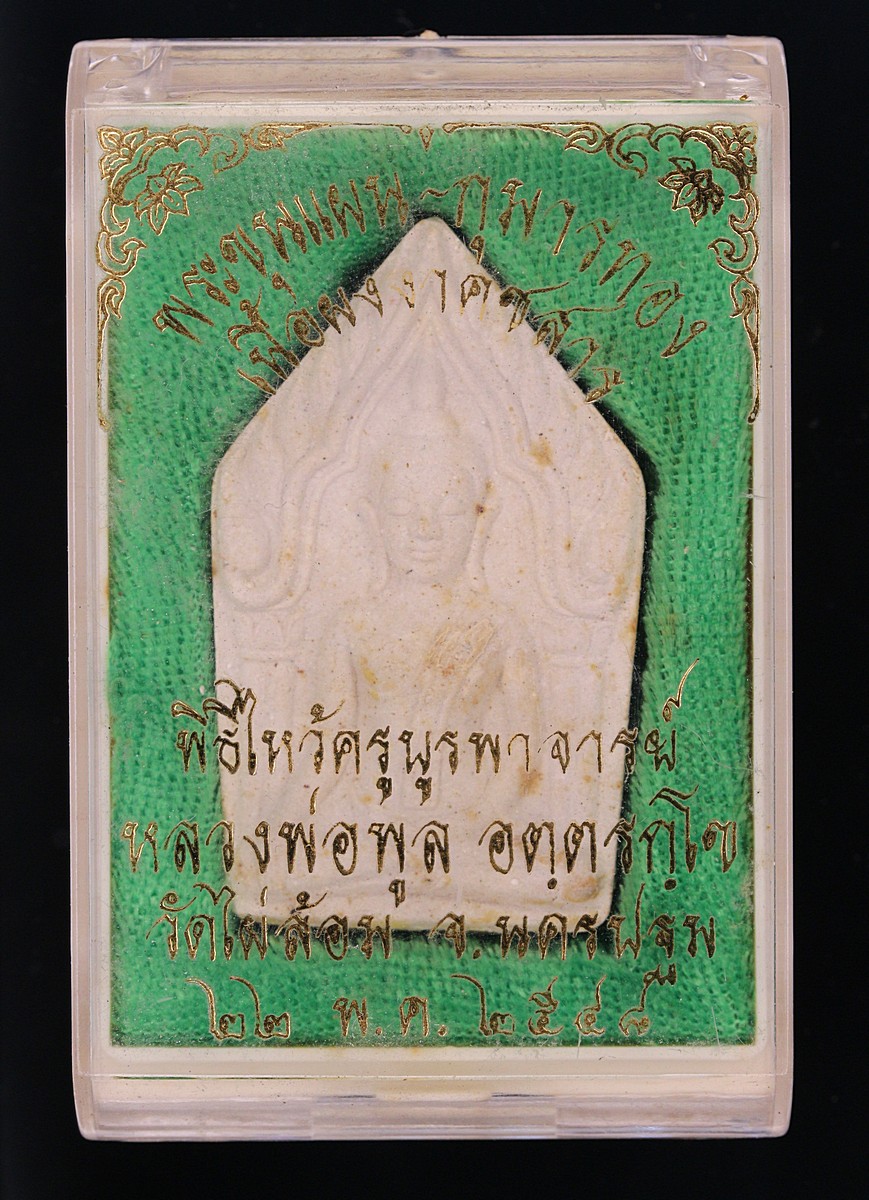 พระขุนแผน~กุมารทอง
เนื้อผงงาคชสาร
พิธีไหว้ครูบูรพาจารย์
หลวงพ่อพูล อตฺตรกฺโข
วัดไผ่ล้อม จ.นครปฐม
๒๒ พ.ค. ๒๕๔๘